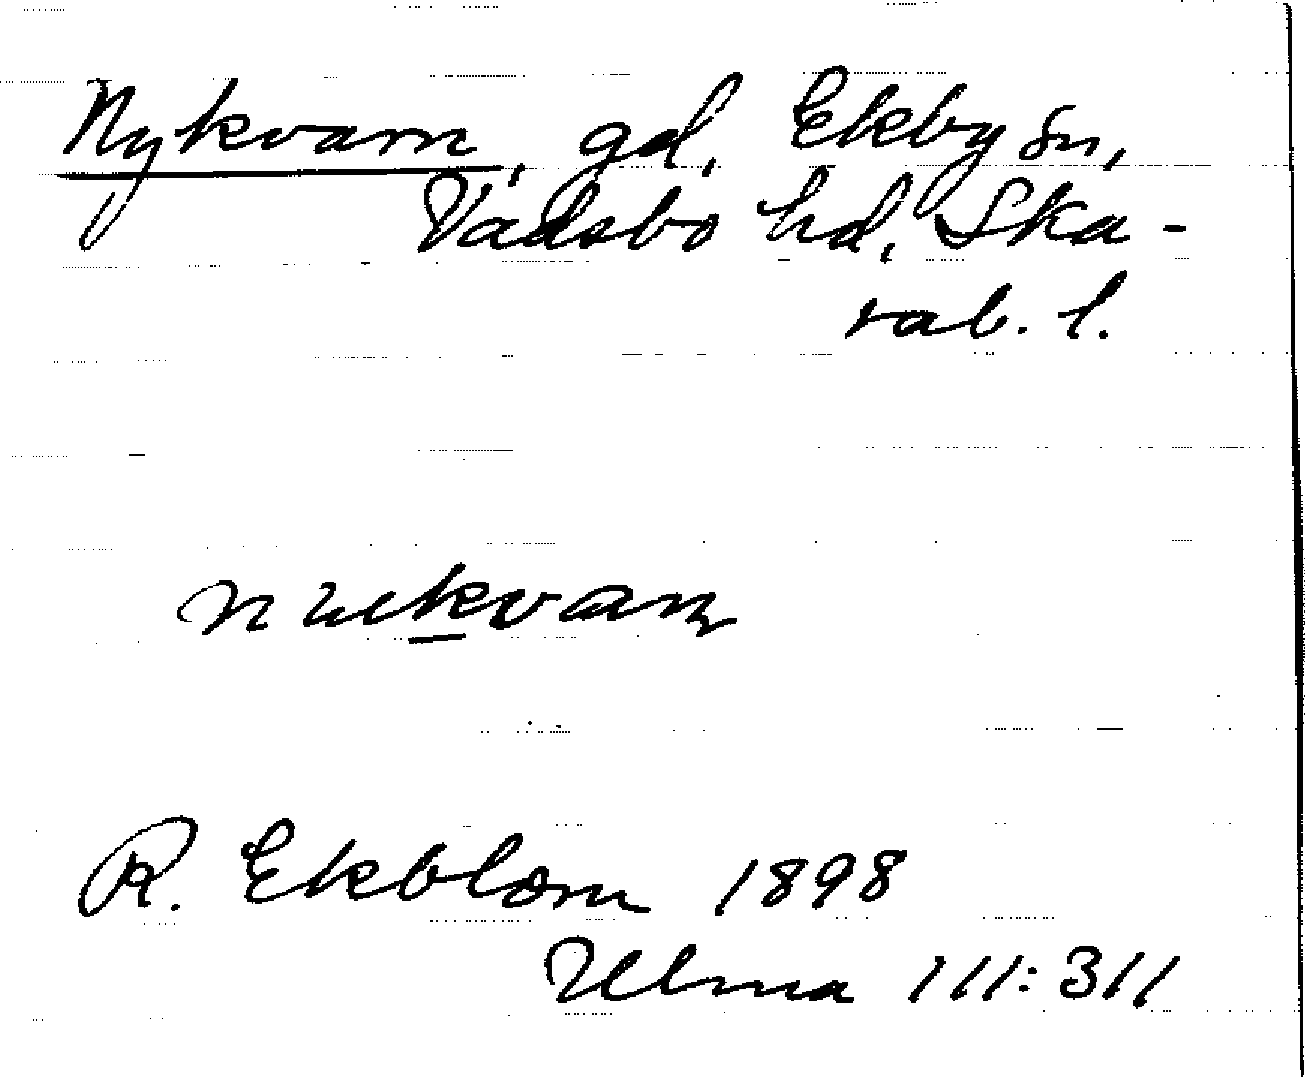 Nykvarn, gd, Ekby sn,
Vadsbo hd, Ska-
rab. l.
R. Ekblom 1898
Ulma 111:311